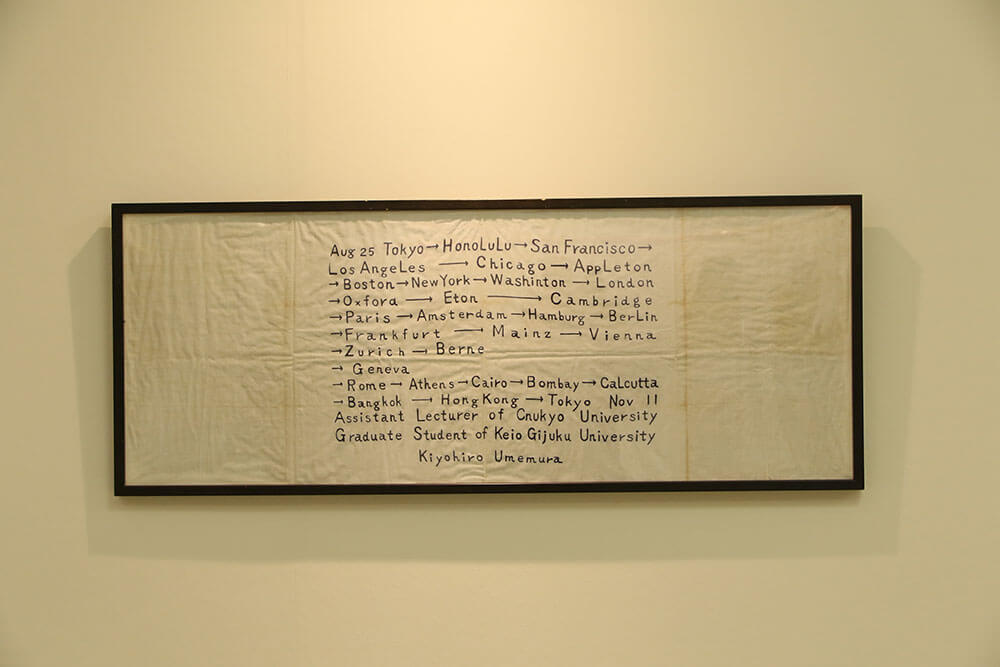 Aug 25 Tokyo→HonoLuLu→San Francisco→
Los AngeLes → Chicago → AppLeton
→Boston→NewYork→Washinton → London
→Oxfora → Eton → Cambridge
→Paris →Amsterdam→Hamburg → BerLin
→Frankfurt → Mainz → Vienna
→Zurich → Berne
→ Geneva
→Rome→ Athens→Cairo→Bombay→CaLcutta
→Bangkok → HongKong →Tokyo Nov 11
Assistant Lecturer of Cnukyo University
Graduate Student of Keio Gijuku University
Kiyohiro Umemura